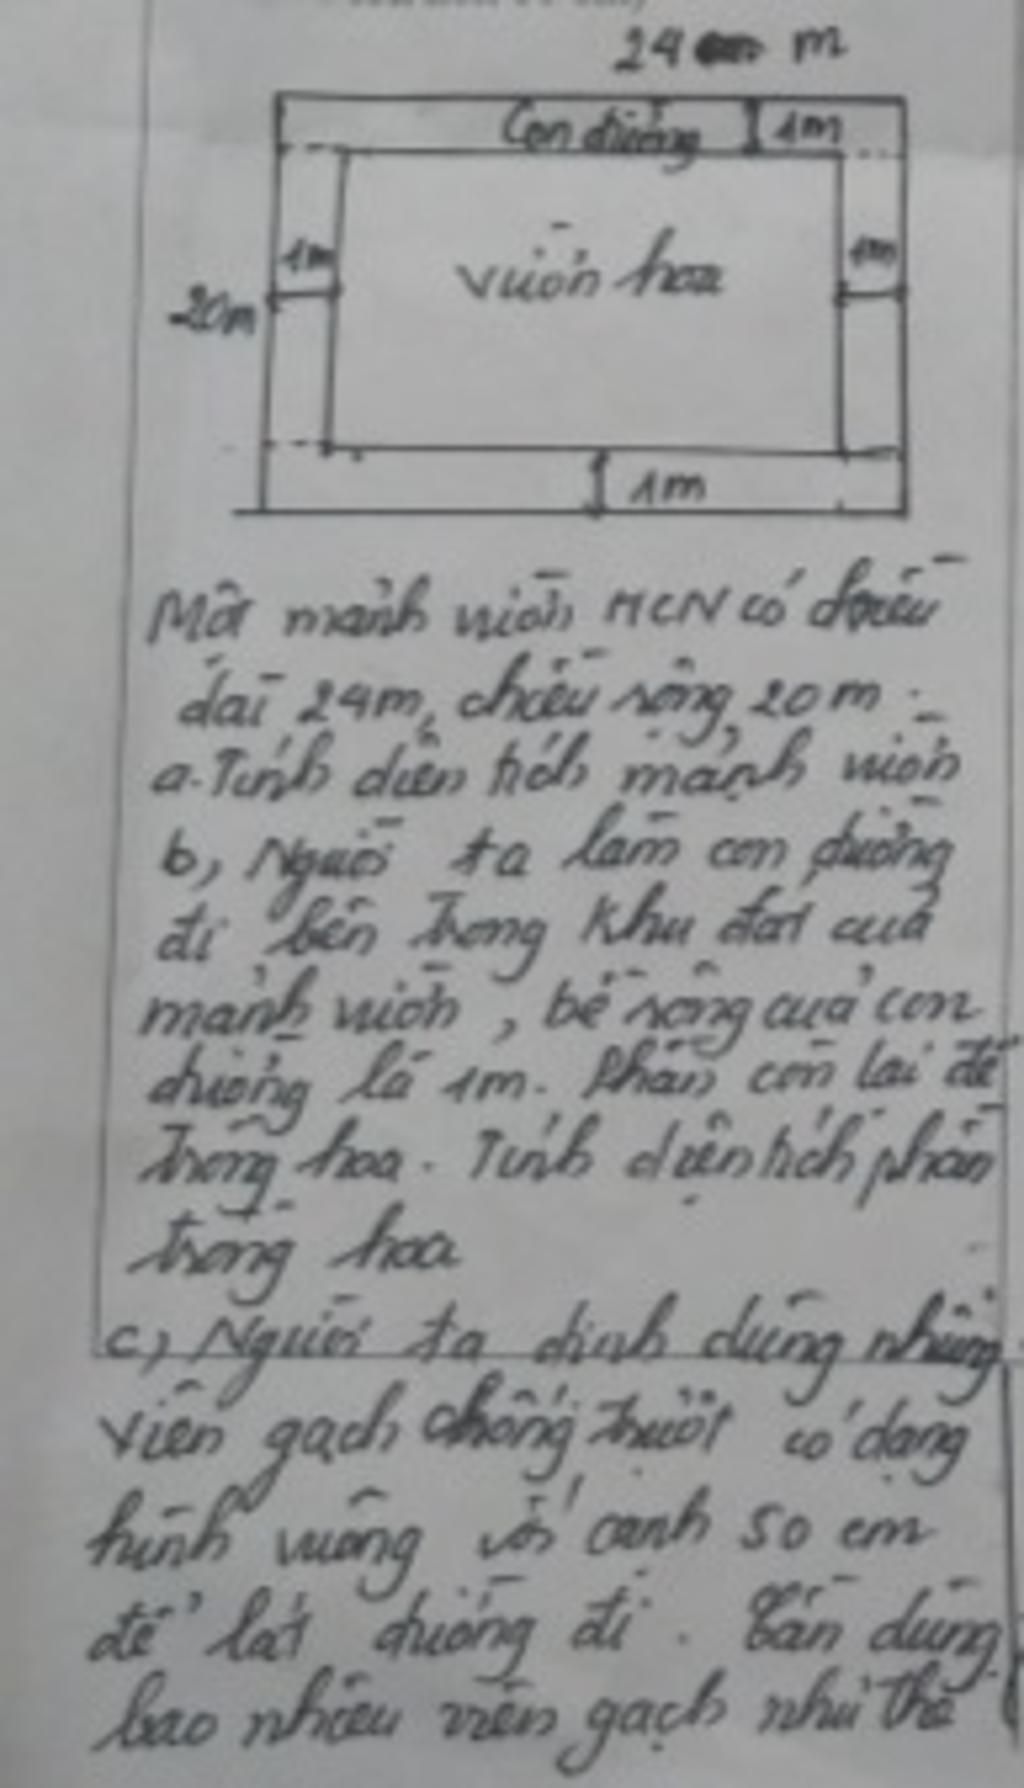 24 m
Con đường
1m
1m
1m
vườn hoa
20m
1m
Một mảnh vườn HCN có chiều
dài 24m, chiều rộng 20m.
a. Tính diện tích mảnh vườn
b, Người ta làm con đường
đi bên trong khu đất của
mảnh vườn, bề rộng của con
đường là 1m. Phần còn lại để
trồng hoa. Tính diện tích phần
trồng hoa
c, Người ta định dùng những
viên gạch chống trượt có dạng
hình vuông với cạnh 50 cm
để lát đường đi. Cần dùng
bao nhiêu viên gạch như thế